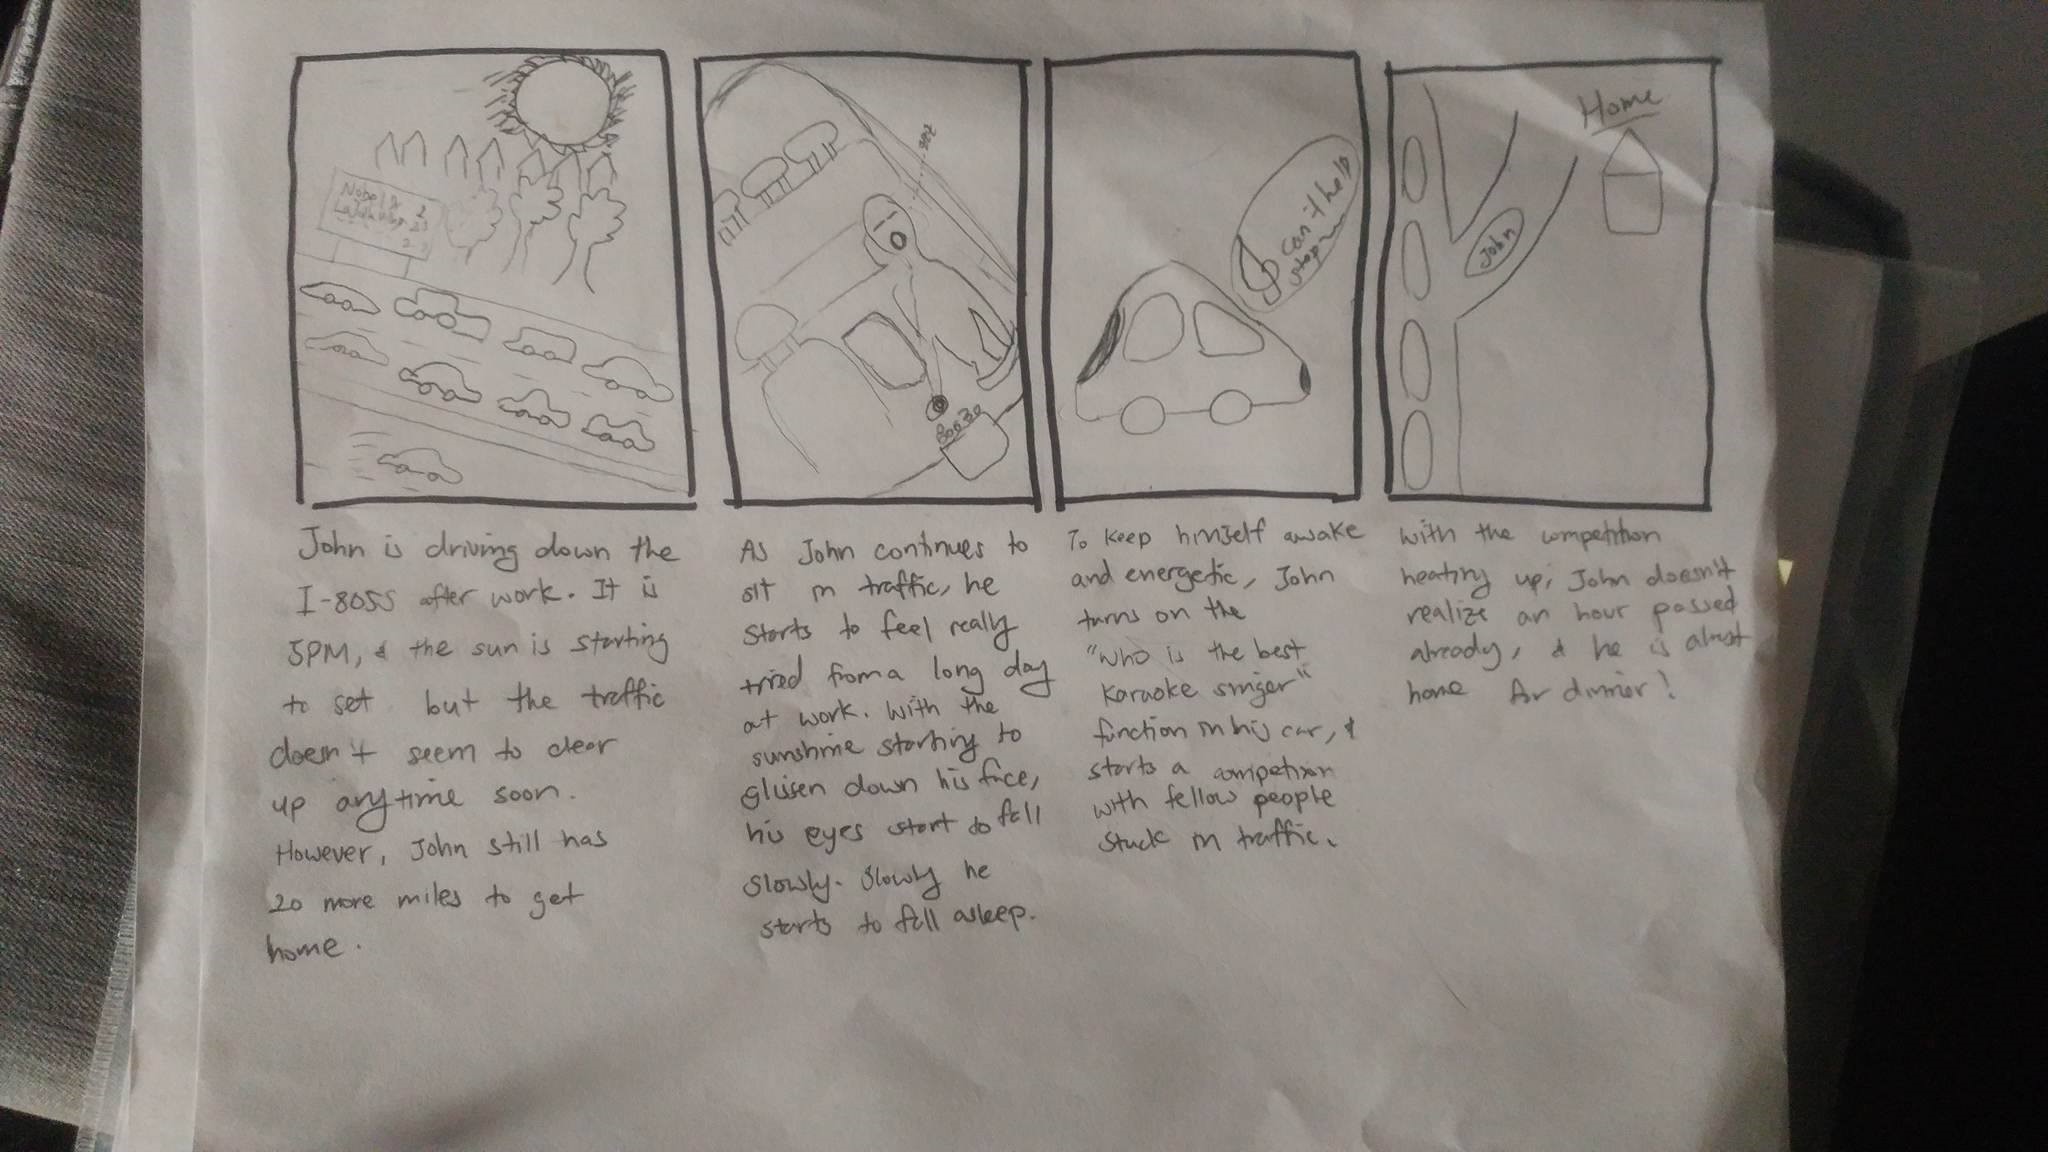 2
can't help
stop
Home
John
John is driving down the
I-805S after work. It is
5PM, & the sun is starting
to set but the traffic
doesn't seem to clear
up anytime soon.
However, John still has
20 more miles to get
home.
As John continues to
sit in traffic, he
starts to feel really
tried from a long day
at work. With the
sunshine starting to
glissen down his face,
his eyes start to fall
slowly. Slowly he
starts to fall asleep.
To keep himself awake
and energetic, John
turns on the
"who is the best
karaoke singer"
function in his car, &
starts a competition
with fellow people
stuck in traffic.
with the competition
heating up, John doesn't
realize an hour passed
already, & he is almost
home for dinner!